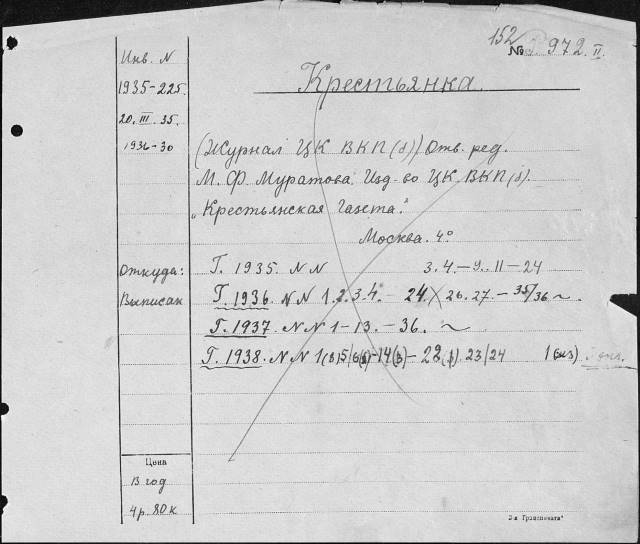 152
№ 972. II.
Инв. N
1935-225.
20. III. 35.
1936-30
Крестьянка.
(Журнал ЦК ВКП(б)) Отв. ред.
М. Ф. Муратова. Изд-во ЦК ВКП(б).
„Крестьянская Газета."
Москва. 4°
Откуда:
Выписан
Г. 1935. N N 3. 4. — 9. 11 — 24
Г. 1936. N N 1. 2. 3. 4. — 24. 26. 27. — 35/36 ~
Г. 1937. N N 1 — 13. — 36. ~
Г. 1938. N N 1(в) 5/6(в) — 14(в) — 22(в) 23/24 1 (экз)
Цена
В год
4 р. 80 к